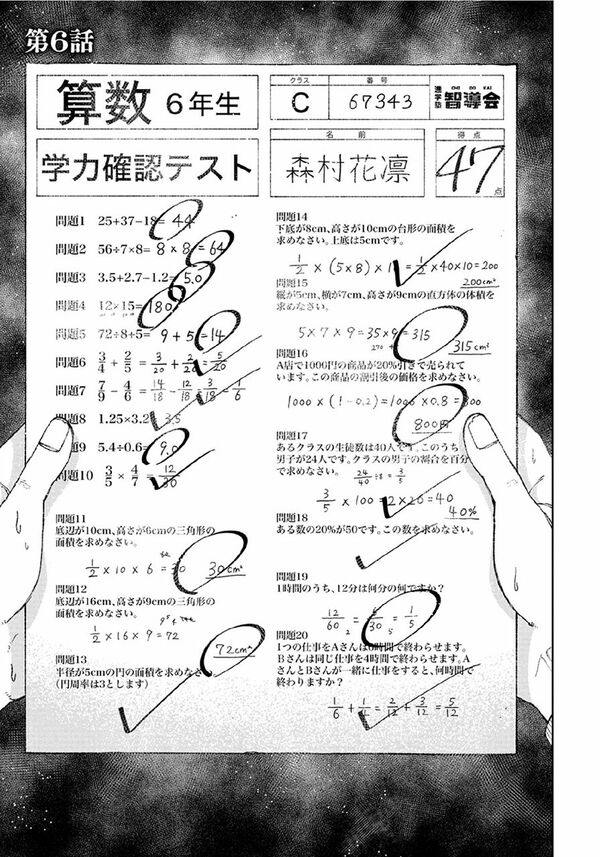 第6話
算数 6年生
学力確認テスト
クラス
C
番号
67343
進学塾
CHI DO KAI
智導会
名前
森村花凛
得点
47点
問題1 25+37-18= 44
問題2 56÷7×8= 8×8=64
問題3 3.5+2.7-1.2= 5.0
問題4 12×15= 180
問題5 72÷8+5= 9+5=14
問題6 3/4 + 2/5 = 3/20 + 2/20 = 5/20
問題7 7/9 - 4/6 = 14/18 - 12/18 = 3/18 = 1/6
問題8 1.25×3.2= 3.5
問題9 5.4÷0.6= 9.0
問題10 3/5 × 4/7 = 12/30
問題11
底辺が10cm、高さが6cmの三角形の
面積を求めなさい。
1/2 × 10 × 6 = 30
30cm²
問題12
底辺が16cm、高さが9cmの三角形の
面積を求めなさい。
1/2 × 16 × 9 = 72
72cm²
問題13
半径が5cmの円の面積を求めなさい。
(円周率は3とします)
問題14
下底が8cm、高さが10cmの台形の面積を
求めなさい。上底は5cmです。
1/2 × (5×8) × 1 = 1/2 × 40 × 10 = 200
200cm²
問題15
縦が5cm、横が7cm、高さが9cmの直方体の体積を
求めなさい。
5×7×9=35×9=315
270+
315cm²
問題16
A店で1000円の商品が20%引きで売られて
います。この商品の割引後の価格を求めなさい。
1000×(1-0.2)=1000×0.8=800
800円
問題17
あるクラスの生徒数は40人です。このうち
男子が24人です。クラスの男子の割合を百分
で求めなさい。
24/40 ÷8= 3/5
3/5 × 100 = 2×20=40
40%
問題18
ある数の20%が50です。この数を求めなさい。
問題19
1時間のうち、12分は何分の何ですか?
12/60 = 6/30 = 1/5
問題20
1つの仕事をAさんは6時間で終わらせます。
Bさんは同じ仕事を4時間で終わらせます。A
さんとBさんが一緒に仕事をすると、何時間で
終わりますか?
1/6 + 1/4 = 2/12 + 3/12 = 5/12